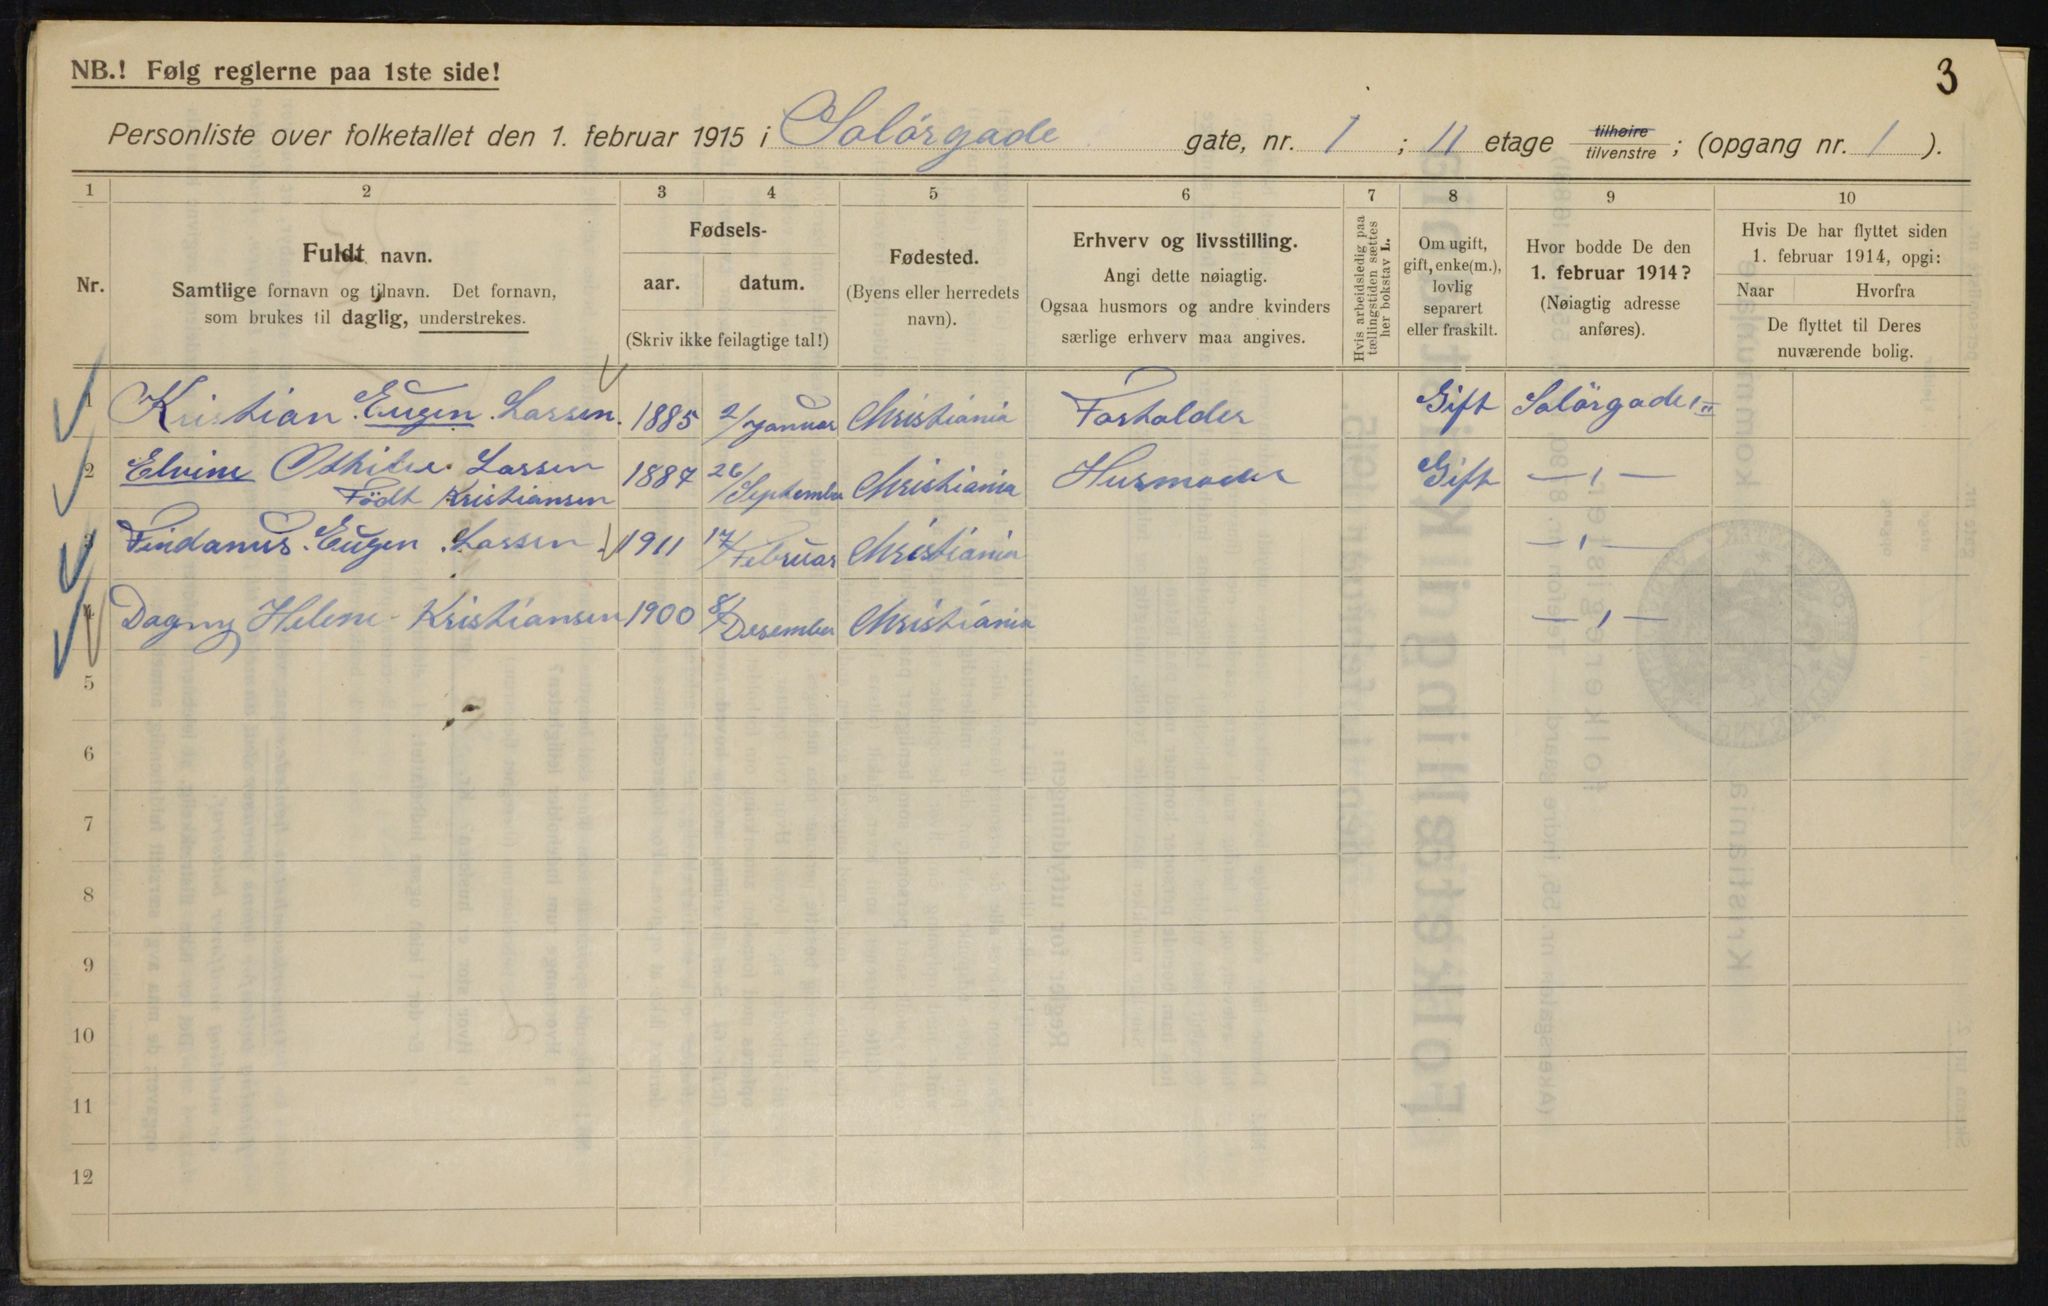 3
NB.! Følg reglerne paa 1ste side!
Personliste over folketallet den 1. februar 1915 i Solörgade gate, nr. 1 ; II etage tilhøire / tilvenstre ; (opgang nr. 1 ).
1 2 3 4 5 6 7 8 9 10
Nr.
Fuldt navn.
Samtlige fornavn og tilnavn. Det fornavn,
som brukes til daglig, understrekes.
Fødsels-
aar. datum.
(Skriv ikke feilagtige tal!)
Fødested.
(Byens eller herredets
navn).
Erhverv og livsstilling.
Angi dette nøiagtig.
Ogsaa husmors og andre kvinders
særlige erhverv maa angives.
Hvis arbeidsledig paa
tællingstiden sættes
her bokstav L.
Om ugift,
gift, enke(m.),
lovlig
separert
eller fraskilt.
Hvor bodde De den
1. februar 1914?
(Nøiagtig adresse
anføres).
Hvis De har flyttet siden
1. februar 1914, opgi:
Naar Hvorfra
De flyttet til Deres
nuværende bolig.
1 Kristian Eugen Larsen. 1885 2/Januar Christiania Forholder Gift Solörgade 1 II
2 Elvine Othilie Larsen 1887 26/September Christiania Husmoder Gift — 1 —
Födt Kristiansen
3 Findanus Eugen Larsen 1911 17/Februar Christiania — 1 —
4 Dagny Helene Kristiansen 1900 8/Desember Christiania — 1 —
5
6
7
8
9
10
11
12